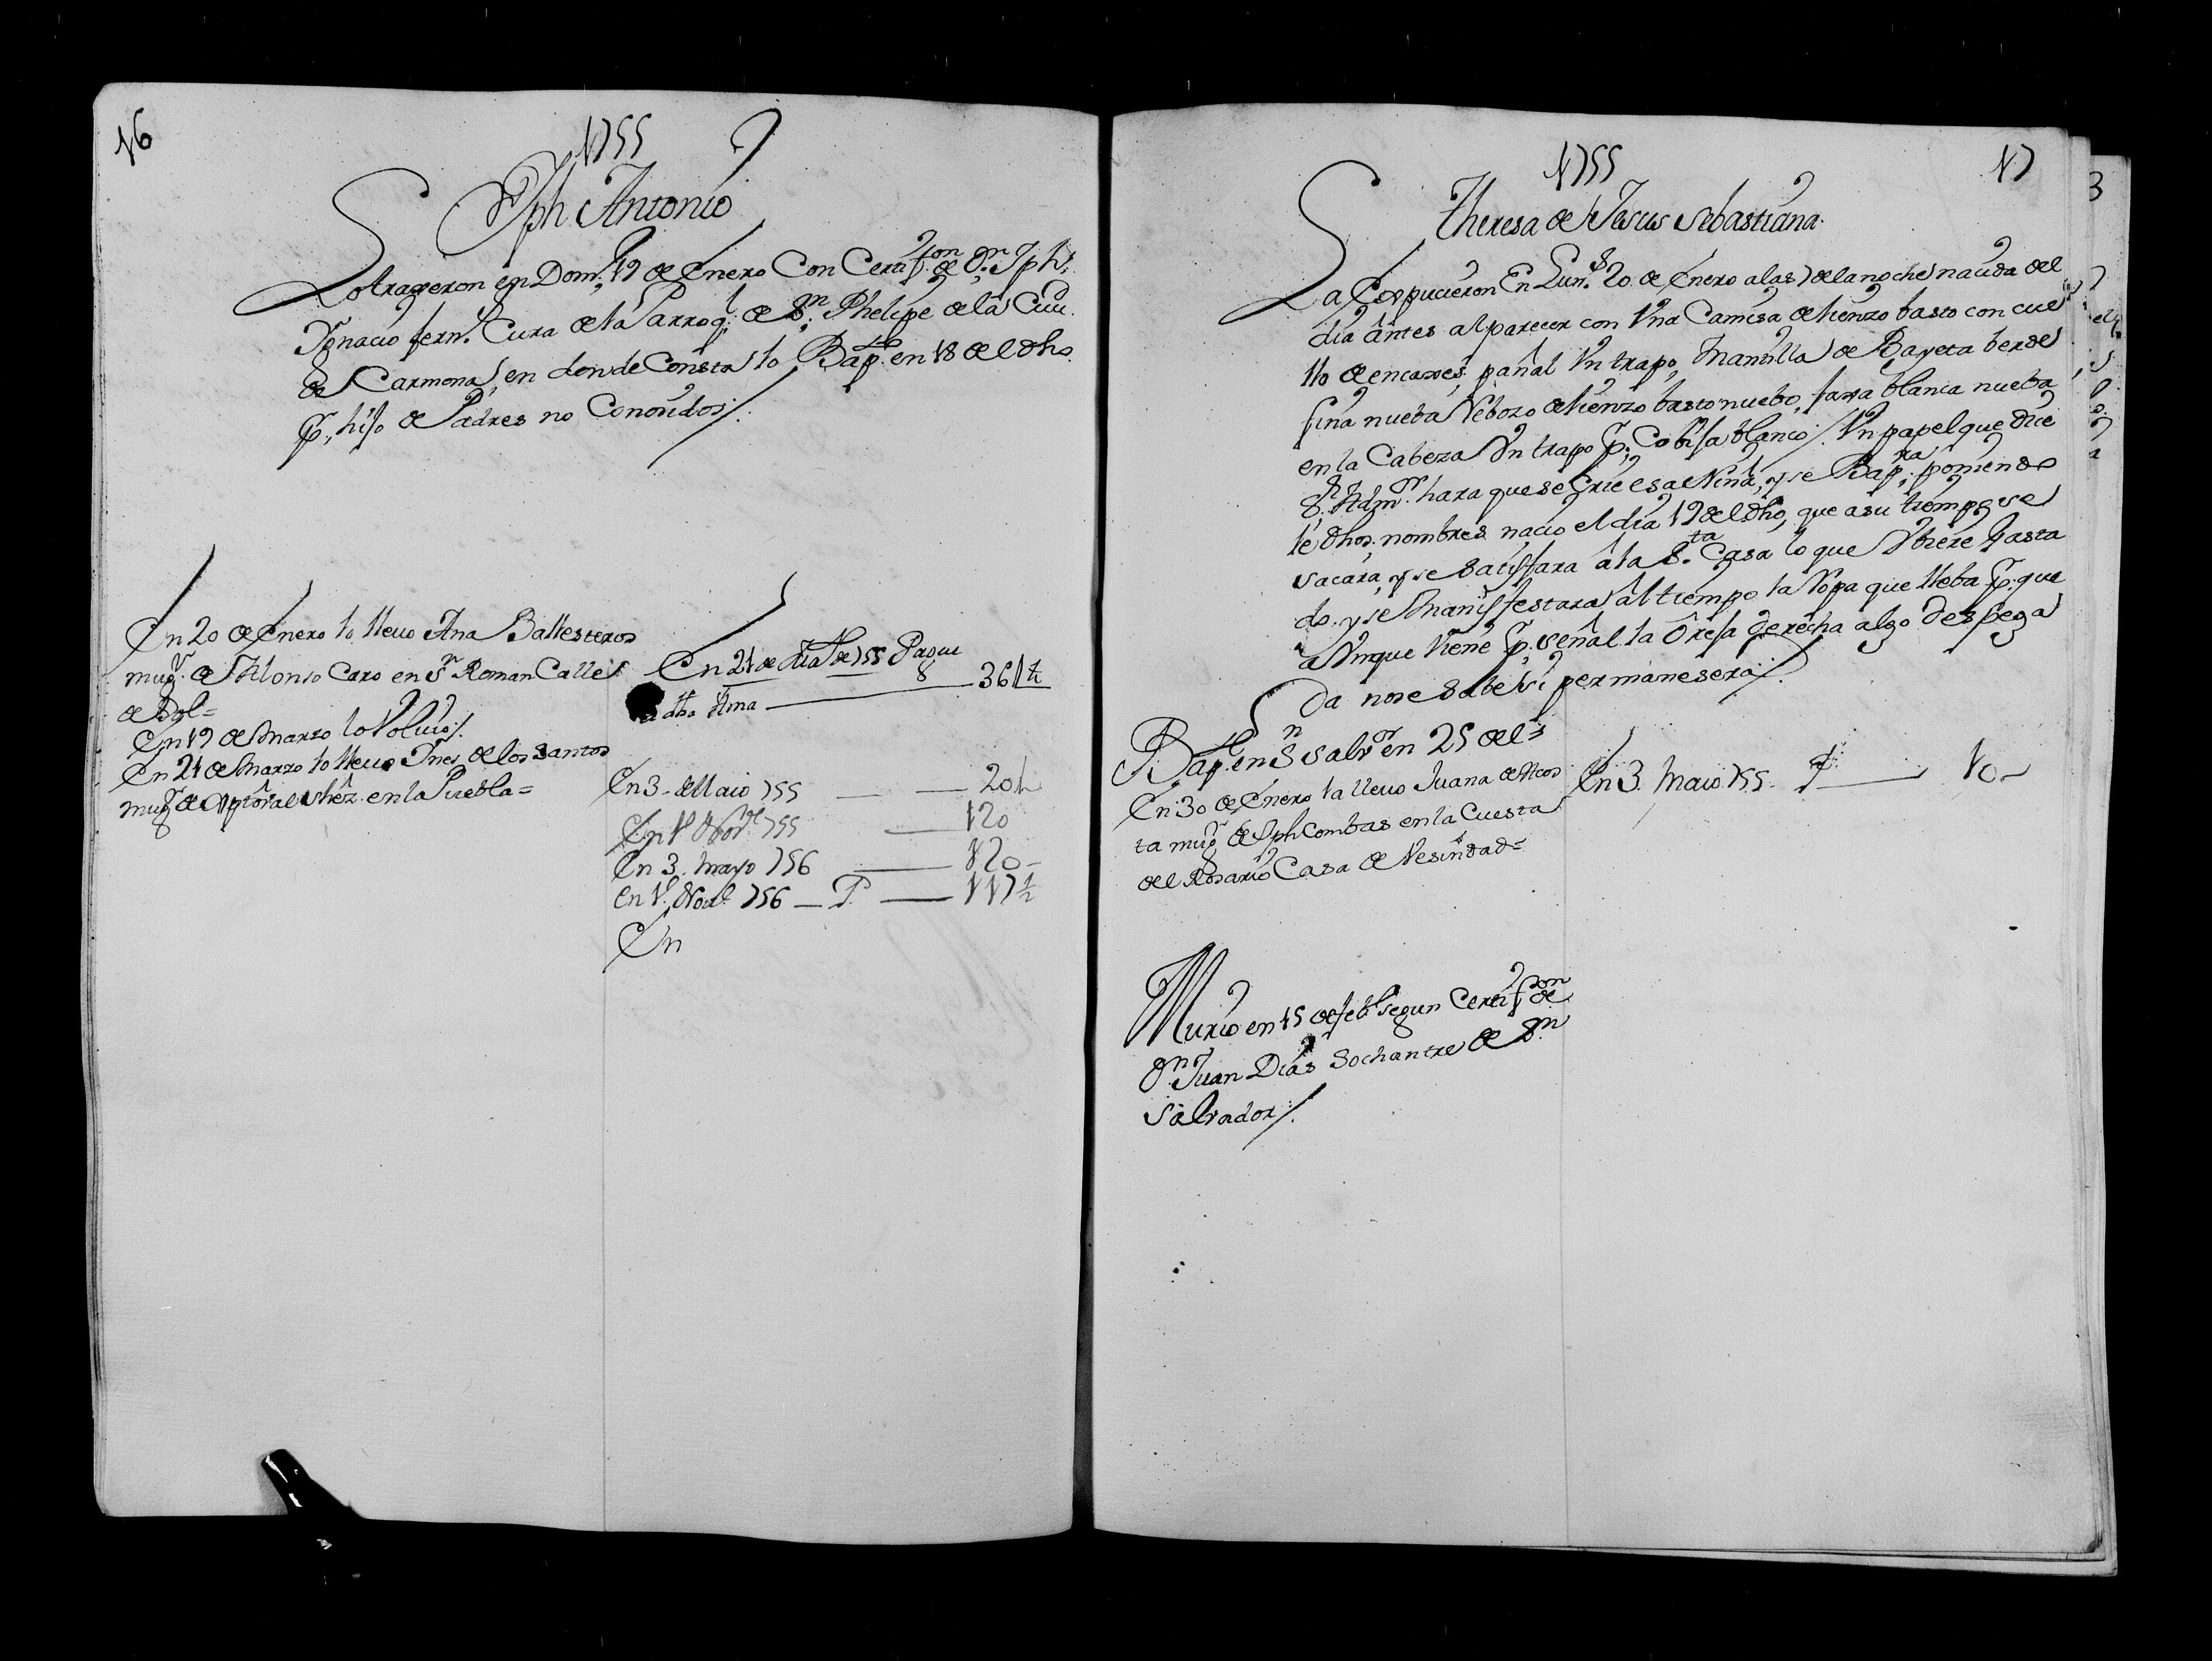 16
1755
Jph Antonio
Lo trageron en Dom.º 19 de Enero Con Certif.on de D.n Jph
Ygnacio fern.z Cura de la Parroq.l de S.n Phelipe de la Ciu.d
de Carmona, en donde Consta lo Bap.ⁿ en 18 de el dho.
p.r hijo de Padres no Conosidos/.
En 20 de Enero lo llevo Ana Ballesteros
mug.r de Alonso Caro en S.n Roman Calle
de Sol=
En 19 de Marzo lo Volvio/.
En 21 de Marzo lo llevo Ines de los Santos
mug.r de en la Puebla=
En 21 de 755 Pague
a dha Ama 36 1/2
En 3. de Maio 755 20
En 1º Nov.e 755 120
En 3. mayo 756 120
En 1º Nov.e 756 P. 117 1/2
En
17
1755
Theresa de Jesus Sebastiana.
La Espucieron En Lun.s 20 de Enero a las 7 de la noche nacida del
dia antes al parecer con Vna Camisa de lienzo basto con cue
llo de encaxes, pañal Vn trapo, Mantilla de Bayeta berde
fina nueba Rebozo de lienzo basto nuebo, faxa blanca nueba
en la Cabeza Vn trapo p.r Cobija blanco/. Vn papel que dice
S.r Adm.or hara que se Crie esa Niña, y se Bap.ra poniendo
le dhos. nombres nacio el dia 19 del dho, que a su tiempo se
sacara, y se satisfara a la S.ta Casa lo que Vbiere gasta
do. y se Manifestara al tiempo la Ropa que lleba p.r que
aVnque tiene p.r señal la Oreja derecha algo despega
da no se sabe si permanesera/.
Bap. en S.n Salv.or en 25 del=
En 30 de Enero la llevo Juana de Acos
ta mug.r de Jph Combas en la Cuesta
del Rosario Casa de Vesindad=
En 3. Maio. 755. P. 10
Murio en 15 de feb.º segun Certif.on de
D.n Juan Dias Sochantre de S.n
Salvador/.